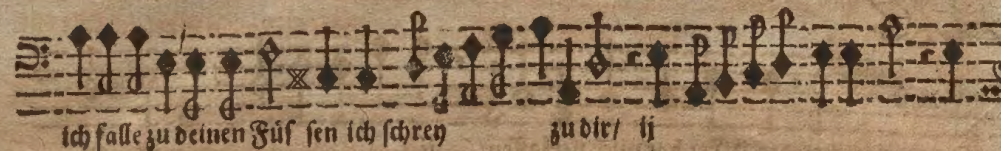 ich falle zu deinen Füſ ſen ich ſchrey zu dir/ ij